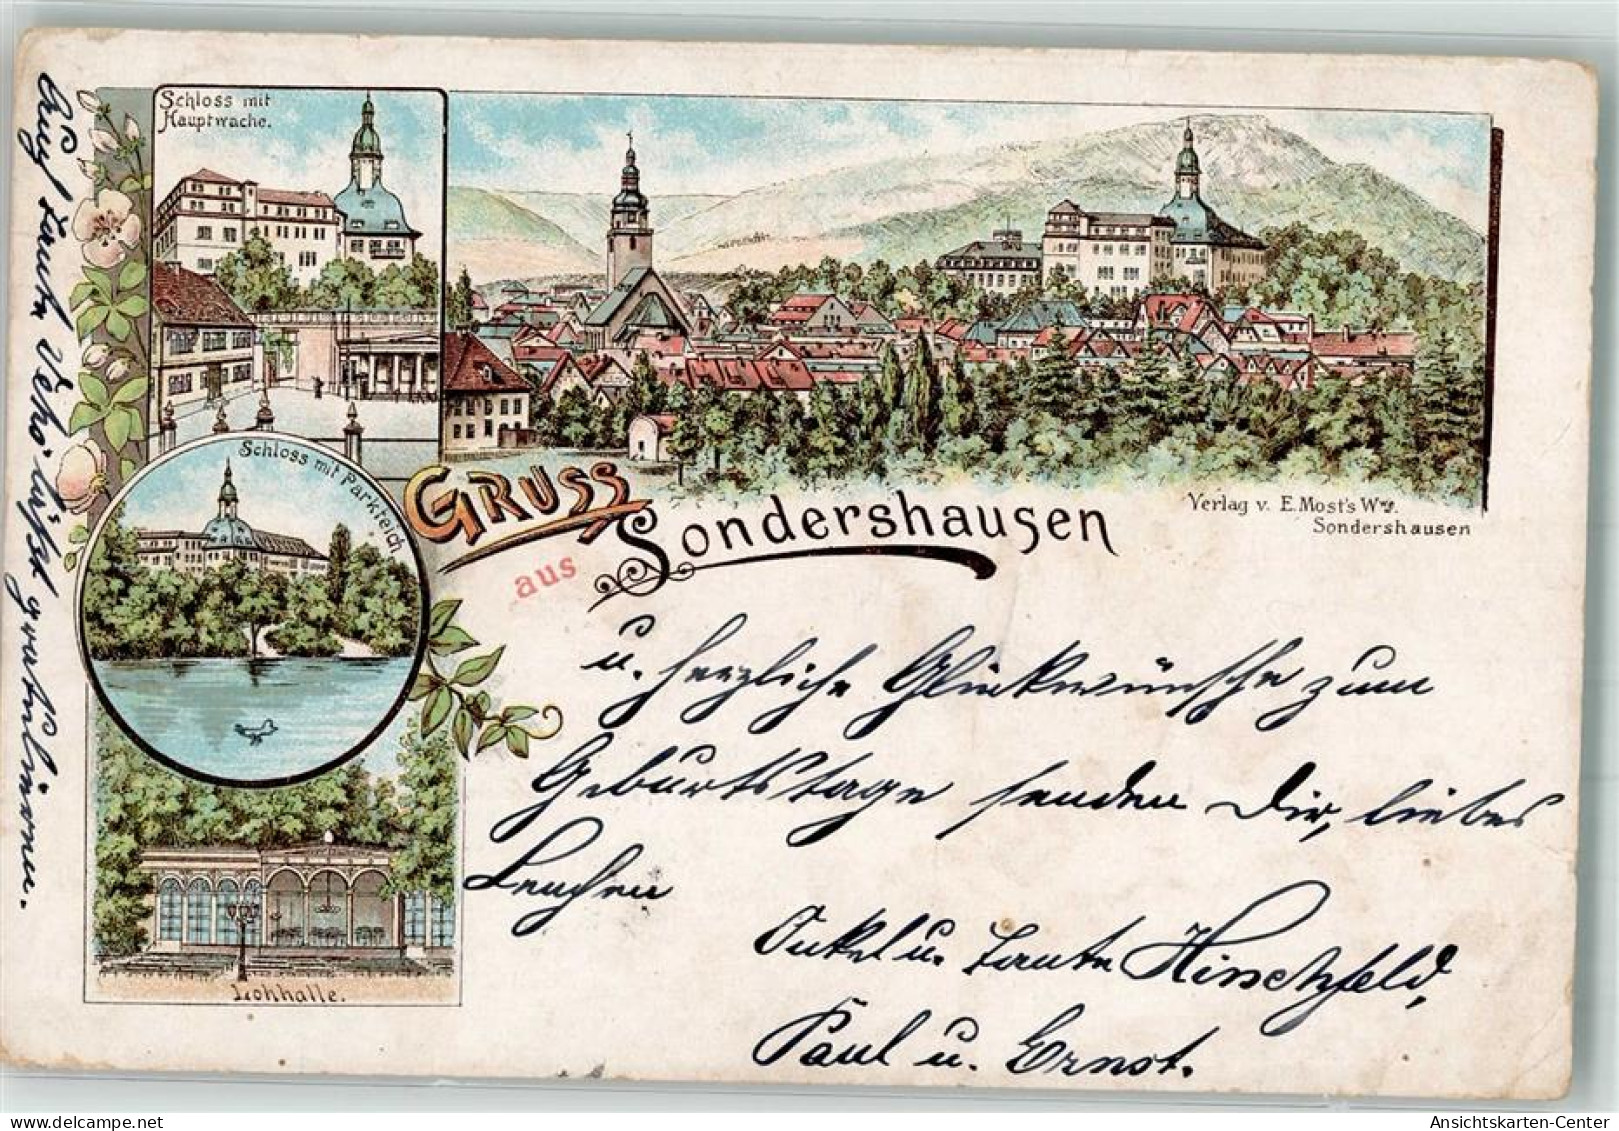 Schloss mit
Hauptwache.
Schloss mit Parkteich
Lohhalle.
Gruss
aus
Sondershausen
Verlag v. E. Most's Wwe.
Sondershausen
u. herzliche Glückwünsche zum
Geburtstage senden Dir, liebes
Onkel u. Tante Hirschfeld,
Paul u. Ernst.
Auch Tante läßt gratulieren.
Ansichtskarten-Center